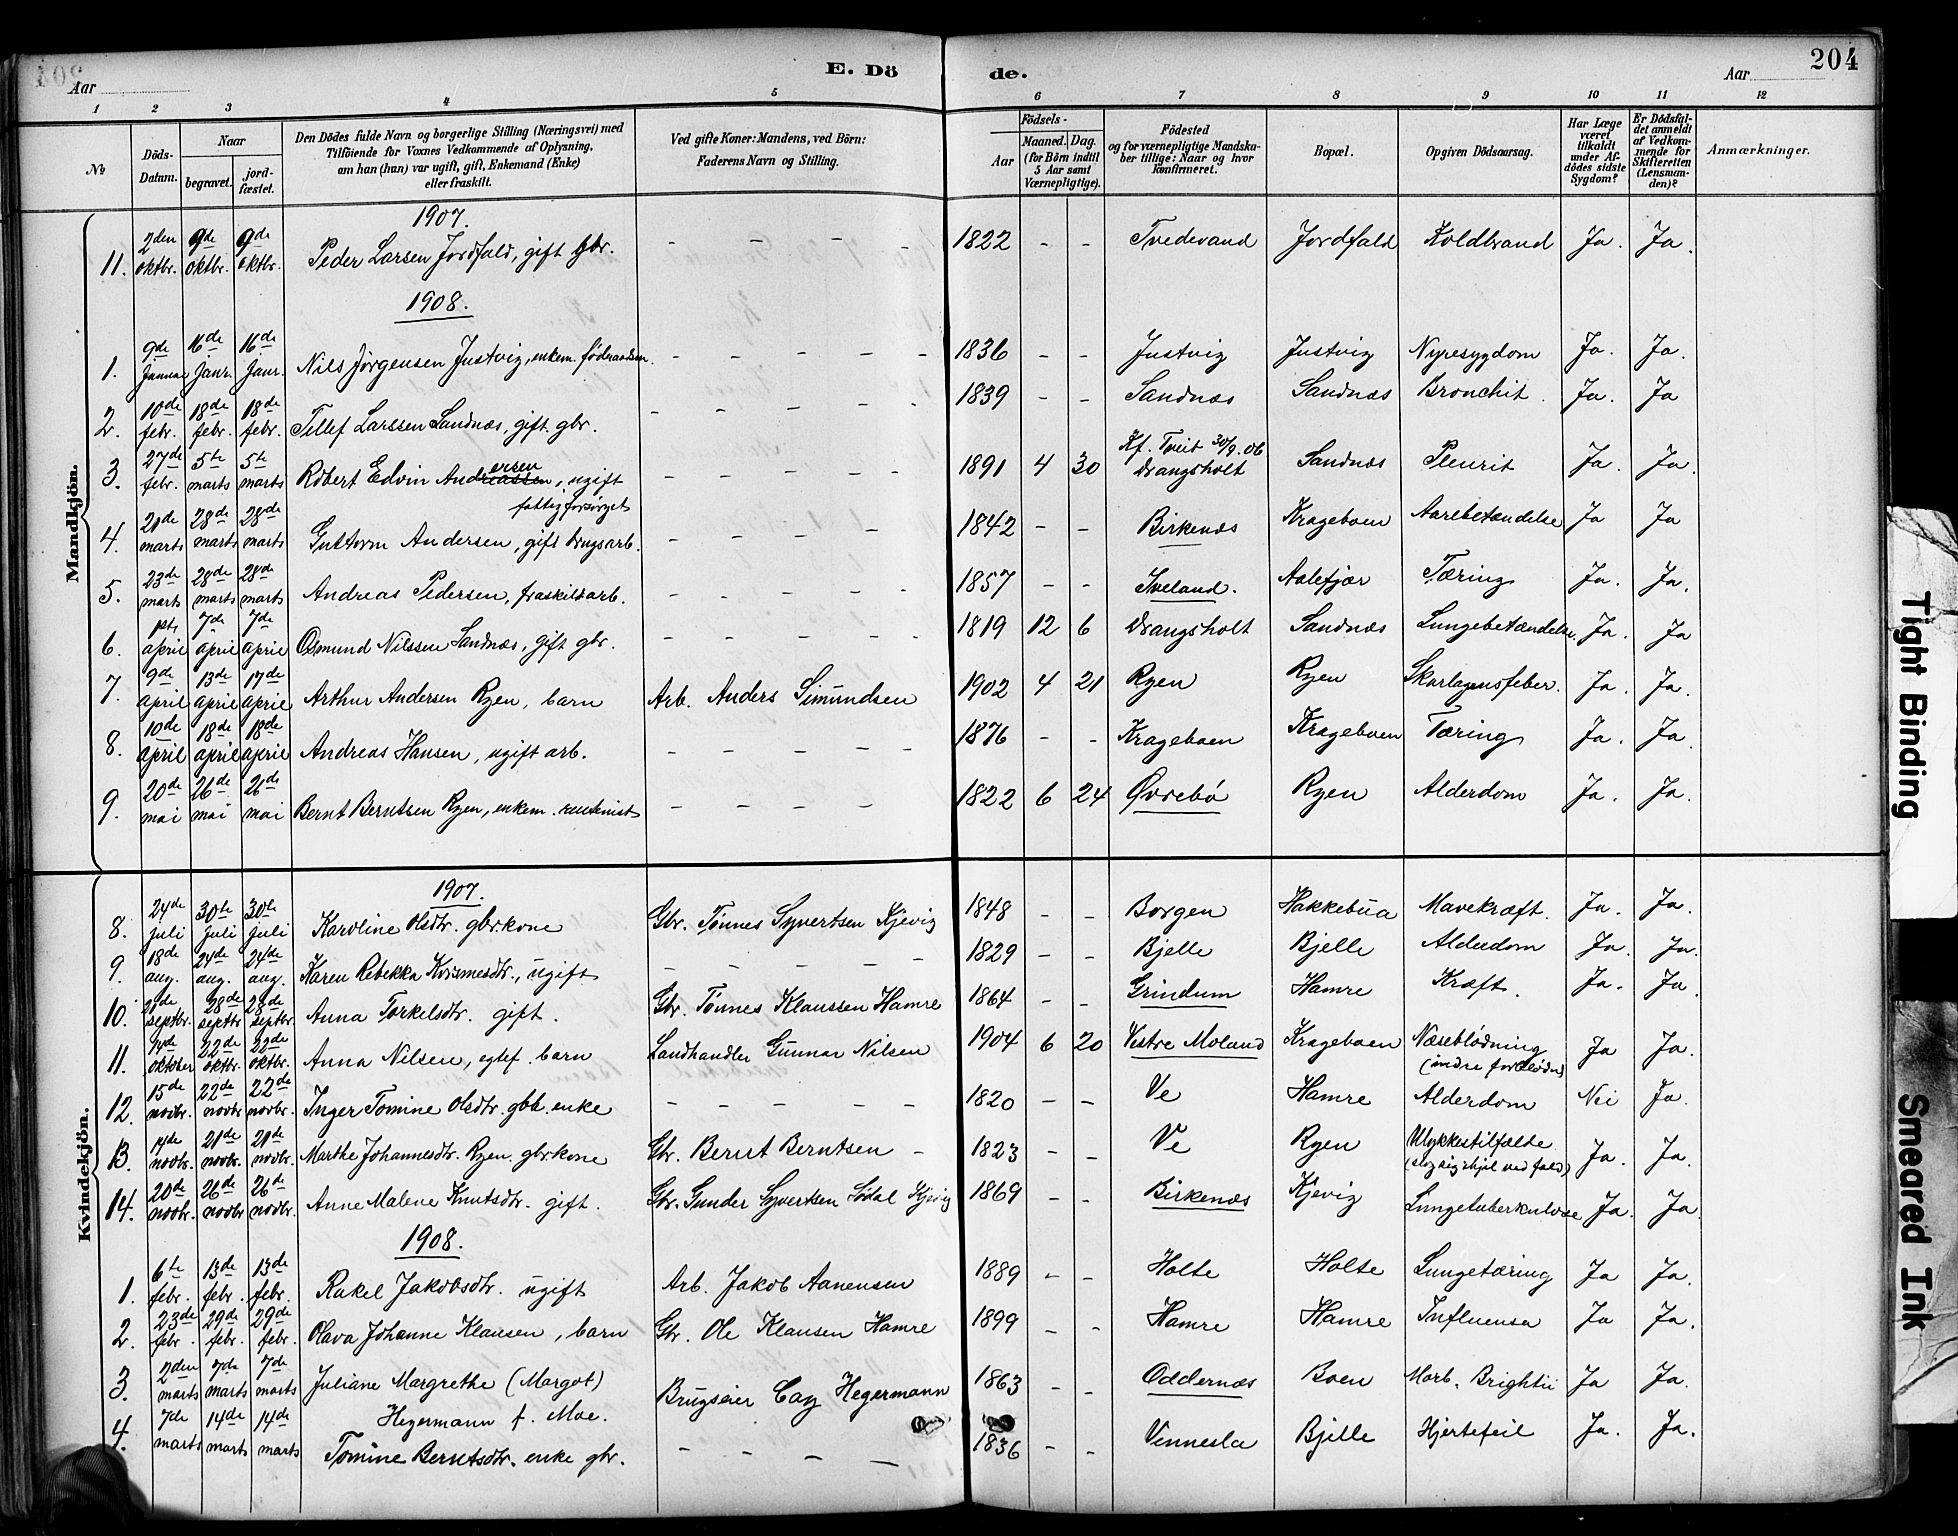 204
Aar
E. Dö
de.
Aar
204
1 2 3 4 5 6 7 8 9 10 11 12
No
Döds-Datum.
Naar
begravet.
jord-fæstet.
Den Dödes fulde Navn og borgerlige Stilling (Næringsvei) med
Tilföiende for Voxnes Vedkommende af Oplysning,
om han (hun) var ugift, gift, Enkemand (Enke)
eller fraskilt.
Ved gifte Koner: Mandens, ved Börn:
Faderens Navn og Stilling.
Födsels-
Aar
Maaned. Dag.
(for Börn indtil
5 Aar samt
Værnepligtige).
Födested
og for værnepligtige Mandska-
ber tillige: Naar og hvor
konfirmeret.
Bopæl.
Opgiven Dödsaarsag.
Har Læge
været
tilkaldt
under Af-
dödes sidste
Sygdom?
Er Dödsfal-
det anmeldt
af Vedkom-
mende for
Skifteretten
(Lensman-
den)?
Anmærkninger.
Mandkjön.
1907.
11. 2den oktbr. 9de oktbr. 9de oktbr. Peder Larsen Jordfald, gift gbr. - - - - 1822 - - Tvedevand Jordfald Koldbrand Ja. Ja.
1908.
1. 9de Januar 16de Janr. 16de Janr. Nils Jörgensen Justvig, enkem. föderaadsm. - - - - - 1836 - - Justvig Justvig Nyresygdom Ja. Ja.
2. 10de febr. 18de febr. 18de febr. Tellef Larssen Sandnæs, gift. gbr. - - - - - 1839 - - Sandnæs Sandnæs Bronchit. Ja. Ja
3. 27de febr. 5te marts 5te marts Robert Edvin Andreassen ersen, ugift fattigforsörget - - - - 1891 4 30 Kf. Tveit 30/9.06 Drangsholt Sandnæs Pleurit Ja. Ja.
4. 21de marts 28de marts 28de marts Guttorm Andersen, gift brugsarb. - - - - 1842 - - Birkenæs Krageboen Aarebetændelse Ja Ja
5. 23de marts 28de marts 28de marts Andreas Pedersen, fraskilt arb. - - - - - 1857 - - Iveland. Aalefjær Tæring Ja. Ja.
6. 1ste april 7de april 7de april Osmund Nilssen Sandnæs, gift gbr. - - - - - 1819 12 6 Drangsholt Sandnæs Lungebetændelse. Ja. Ja
7. 9de april 13de april 17de april Arthur Andersen Ryen, barn Arb. Anders Simundsen 1902 4 21 Ryen Ryen Skarlagensfeber. Ja. Ja.
8. 10de april 18de april 18de april Andreas Hansen, ugift arb. - - - - - 1876 - - Krageboen Krageboen Tæring Ja. Ja.
9. 20de mai 26de mai 26de mai Bernt Berntsen Ryen, enkem. rentenist - - - - 1822 6 24 Øvrebö Ryen Alderdom Ja. Ja.
Kvindekjön.
1907.
8. 24de juli 30te juli 30te juli Karoline Olsdtr. gbr.kone Gbr. Tönnes Syvertsen Kjevig 1848 - - Borgen Hakkebua Mavekræft. Ja. Ja.
9. 18de aug. 24de aug. 24de aug. Karen Rebekka Kvismesdtr., ugift - - - - - 1829 - - Bjelle Bjelle Alderdom Ja. Ja.
10. 21de septbr. 28de septbr 28de septbr Anna Torkelsdtr. gift. Gbr. Tönnes Klaussen Hamre 1864 - - Grindum Hamre Kræft. Ja. Ja.
11. 14de oktober 22de oktbr. 22de oktbr. Anna Nilsen, egtef. barn Landhandler Gunnar Nilsen 1904 6 20 Vestre Moland Krageboen Næseblödning (indre forblödn) Ja Ja.
12. 15de novbr. 22de novbr 22de novbr. Inger Tomine Olsdtr. gbr. enke - - - - - 1820 - - Ve Hamre Alderdom Nei Ja.
13. 14de novbr. 21de novbr. 21de novbr. Marthe Johannesdtr. Ryen gbr.kone Gbr. Bernt Berntsen - 1823 - - Ve Ryen Ulykkestilfælde (slog sig ihjel ved fald) Ja. Ja.
14. 20de novbr. 26de novbr 26de novbr. Anne Malene Knutsdtr. gift. Gbr. Gunder Syvertsen Sodal Kjevig 1869 - - Birkenæs Kjevig Lungetuberkulose Ja. Ja.
1908.
1. 6te febr. 13de febr. 13de febr. Rakel Jakobsdtr. ugift Arb. Jakob Aanensen 1889 - - Holte Holte Lungetæring Ja Ja.
2. 23de febr 29de febr. 29de febr. Olava Johanne Klausen, barn Gbr. Ole Klausen Hamre 1899 - - Hamre Hamre Influensa Ja Ja.
3. 2den marts 7de marts 7de marts Juliane Margrethe (Margot) Hegermann f. Moe. Brugseier Cay Hegermann 1863 - - Oddernæs Boen Morb. Brightii Ja Ja.
4. 7de marts 14de marts 14de marts Tomine Berntsdtr. enke gbr. - - - - 1836 - - Vennesla Bjelle Hjertefeil Ja. Ja.
Tight Binding
Smeared Ink